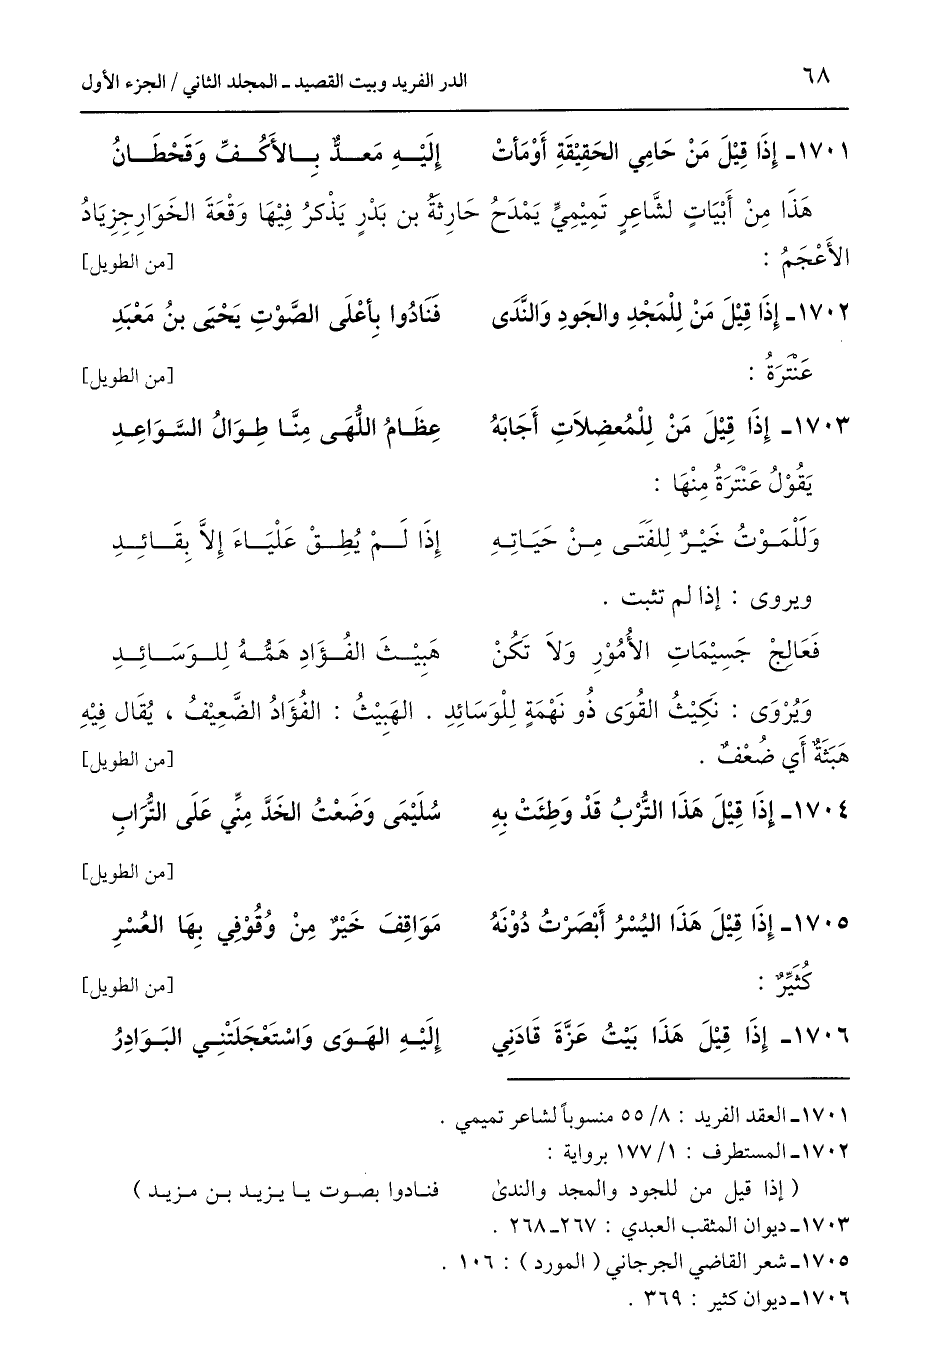 ٦٨ الدر الفريد وبيت القصيد ـ المجلد الثاني / الجزء الأول
١٧٠١ـ إِذَا قِيْلَ مَنْ حَامِي الحَقِيْقَةِ أَوْمَأَتْ إِلَيْـهِ مَعَـدٌّ بِـالأَكُـفِّ وَقَحْطَـانُ
هَذَا مِنْ أَبْيَاتٍ لشَّاعِرٍ تَمِيْمِيٍّ يَمْدَحُ حَارِثَةُ بن بَدْرٍ يَذْكرُ فِيْهَا وَقْعَةَ الخَوَارِجِزِيَادُ
الأَعْجَمُ : [من الطويل]
١٧٠٢ـ إِذَا قِيْلَ مَنْ لِلْمَجْدِ والجَودِ وَالنَّدَى فَنَادُوا بِأعْلَى الصَّوْتِ يَحْيَى بنُ مَعْبَدِ
عَنْتَرَةُ : [من الطويل]
١٧٠٣ـ إِذَا قِيْلَ مَنْ لِلْمُعضِلاَتِ أَجَابَهُ عِظَـامُ اللُّهَـى مِنَّـا طِـوَالُ السَّـوَاعِـدِ
يَقُوْلُ عَنْتَرَةُ مِنْهَا :
وَلَلْمَـوْتُ خَيْـرٌ لِلفَتَـى مِـنْ حَيَـاتِـهِ إِذَا لَـمْ يُطِـقْ عَلْيَـاءَ إِلاَّ بِقَـائِـدِ
ويروى : إذا لم تثبت .
فَعَالِجْ جَسِيْمَاتِ الأُمُوْرِ وَلاَ تَكُنْ هَبِيْـثَ الفُـؤَادِ هَمُّـهُ لِلـوَسَـائِـدِ
وَيُرْوَى : نَكِيْثُ القُوَى ذُو نَهْمَةٍ لِلْوَسَائِدِ . الهَبِيْثُ : الفُؤَادُ الضَّعِيْفُ ، يُقَال فِيْهِ
هَبَثَةٌ أَي ضُعْفٌ . [من الطويل]
١٧٠٤ـ إِذَا قِيْلَ هَذَا التُّرْبُ قَدْ وَطِئَتْ بِهِ سُلَيْمَى وَضَعْتُ الخَدَّ مِنِّي عَلَى التُّرَابِ
[من الطويل]
١٧٠٥ـ إِذَا قِيْلَ هَذَا اليُسْرُ أَبْصَرْتُ دُوْنَهُ مَوَاقِفَ خَيْرٌ مِنْ وُقُوْفِي بِهَا العُسْرِ
كُثَيِّرٌ : [من الطويل]
١٧٠٦ـ إِذَا قِيْلَ هَذَا بَيْتُ عَزَّةَ قَادَنِي إِلَيْـهِ الهَـوَى وَاسْتَعْجَلَتْنِـي البَـوَادِرُ
١٧٠١ـ العقد الفريد : ٨/ ٥٥ منسوباً لشاعر تميمي .
١٧٠٢ـ المستطرف : ١/ ١٧٧ برواية :
( إذا قيل من للجود والمجد والندىٰ فنـادوا بصـوت يـا يـزيـد بـن مـزيـد )
١٧٠٣ـ ديوان المثقب العبدي : ٢٦٧ـ٢٦٨ .
١٧٠٥ـ شعر القاضي الجرجاني ( المورد ) : ١٠٦ .
١٧٠٦ـ ديوان كثير : ٣٦٩ .